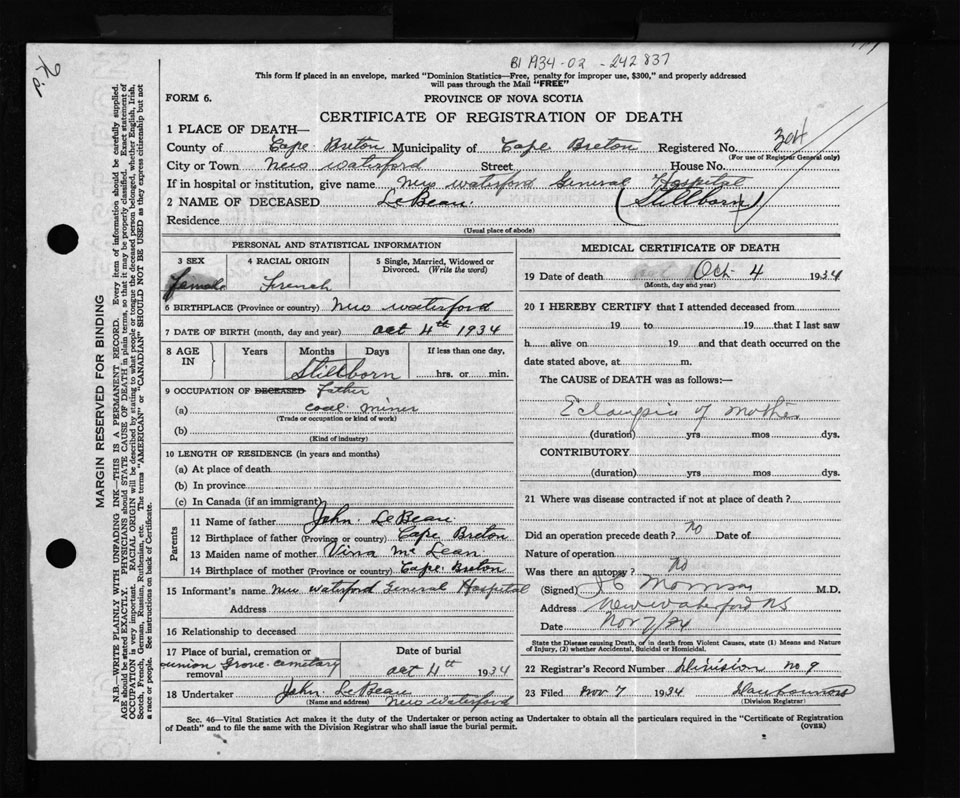 B1 1934-02-242837
This form if placed in an envelope, marked "Dominion Statistics—Free, penalty for improper use, $300," and properly addressed
will pass through the Mail "FREE"
FORM 6.
PROVINCE OF NOVA SCOTIA
CERTIFICATE OF REGISTRATION OF DEATH
1 PLACE OF DEATH—
County of Cape Breton Municipality of Cape Breton Registered No. 304
(For use of Registrar General only)
City or Town New Waterford Street House No.
If in hospital or institution, give name New Waterford General Hospital
2 NAME OF DECEASED LeBeau. (Stillborn)
Residence
(Usual place of abode)
PERSONAL AND STATISTICAL INFORMATION
3 SEX
female
4 RACIAL ORIGIN
French
5 Single, Married, Widowed or
Divorced. (Write the word)
6 BIRTHPLACE (Province or country) New Waterford
7 DATE OF BIRTH (month, day and year) Oct 4th 1934
8 AGE IN
Years Months Days
If less than one day,
Stillborn
hrs. or min.
9 OCCUPATION OF DECEASED Father
(a) coal miner
(Trade or occupation or kind of work)
(b)
(Kind of industry)
10 LENGTH OF RESIDENCE (in years and months)
(a) At place of death
(b) In province
(c) In Canada (if an immigrant)
Parents
11 Name of father John LeBeau
12 Birthplace of father (Province or country) Cape Breton
13 Maiden name of mother Vina McLean
14 Birthplace of mother (Province or country) Cape Breton
15 Informant's name New Waterford General Hospital
Address
16 Relationship to deceased
17 Place of burial, cremation or
removal
union Grove cemetary
Date of burial
Oct 4th 1934
18 Undertaker John LeBeau
(Name and address) New Waterford
MEDICAL CERTIFICATE OF DEATH
19 Date of death Oct 4 1934
(Month, day and year)
20 I HEREBY CERTIFY that I attended deceased from
19 to 19 that I last saw
h alive on 19 and that death occurred on the
date stated above, at m.
The CAUSE of DEATH was as follows:—
Eclampsia of mother
(duration) yrs mos dys.
CONTRIBUTORY
(duration) yrs mos dys.
21 Where was disease contracted if not at place of death?
Did an operation precede death? No Date of
Nature of operation
Was there an autopsy? No
(Signed) Morrison M.D.
Address New Waterford NS
Date Nov 7/34
State the Disease causing Death, or in death from Violent Causes, state (1) Means and Nature
of Injury, (2) whether Accidental, Suicidal or Homicidal.
22 Registrar's Record Number Division No 9
23 Filed Nov 7 1934
(Division Registrar)
Sec. 46—Vital Statistics Act makes it the duty of the Undertaker or person acting as Undertaker to obtain all the particulars required in the "Certificate of Registration
of Death" and to file the same with the Division Registrar who shall issue the burial permit.
(OVER)
MARGIN RESERVED FOR BINDING
N.B.—WRITE PLAINLY WITH UNFADING INK—THIS IS A PERMANENT RECORD. Every item of information should be carefully supplied.
AGE should be stated EXACTLY. PHYSICIANS should STATE CAUSE OF DEATH in plain terms, so that it may be properly classified. Exact statement of
OCCUPATION is very important. RACIAL ORIGIN will be described by stating to what people or tongue the deceased person belonged, whether English, Irish,
Scotch, French, German, Russian, Ruthenian, etc. The terms "AMERICAN" or "CANADIAN" SHOULD NOT BE USED as they express citizenship but not
a race or people. See instructions on back of Certificate.